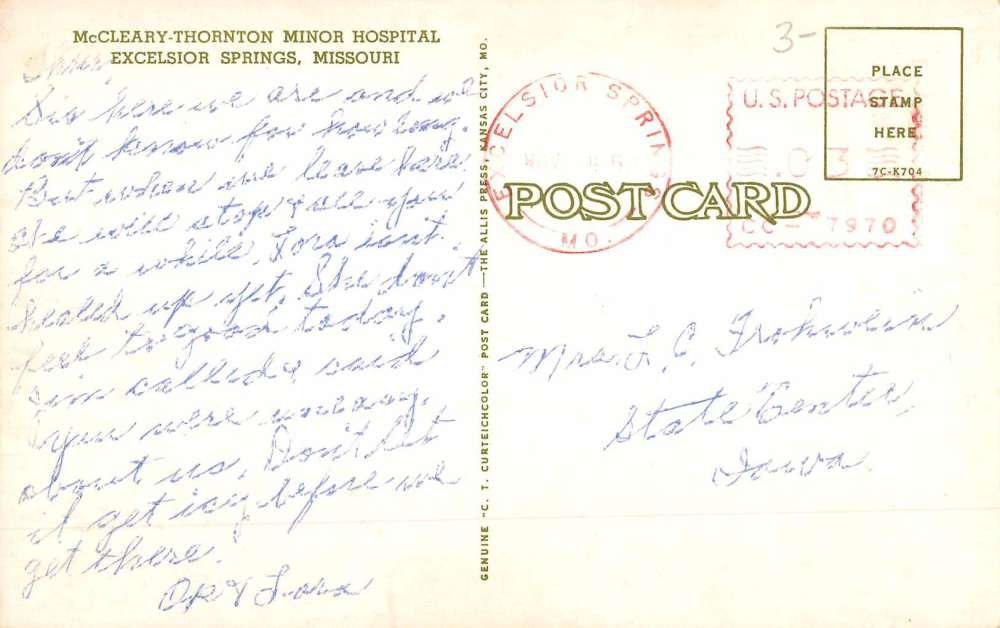 McCLEARY-THORNTON MINOR HOSPITAL
EXCELSIOR SPRINGS, MISSOURI
here we are and we
don't know for how long.
But when we leave here
we will stop & see you
for a while. Lora isn't
healed up yet. She don't
feel to good today.
Jim called & said
you were uneasy
about us. Don't let
it get icy before we
get there.
& Lora
GENUINE "C. T. CURTEICHCOLOR" POST CARD—THE ALLIS PRESS, KANSAS CITY, MO.
3-
EXCELSIOR SPRINGS
MO.
U.S. POSTAGE
.03
7970
PLACE
STAMP
HERE
7C-K704
POST CARD
Mrs. L. C. Frohwein
State Center,
Iowa.